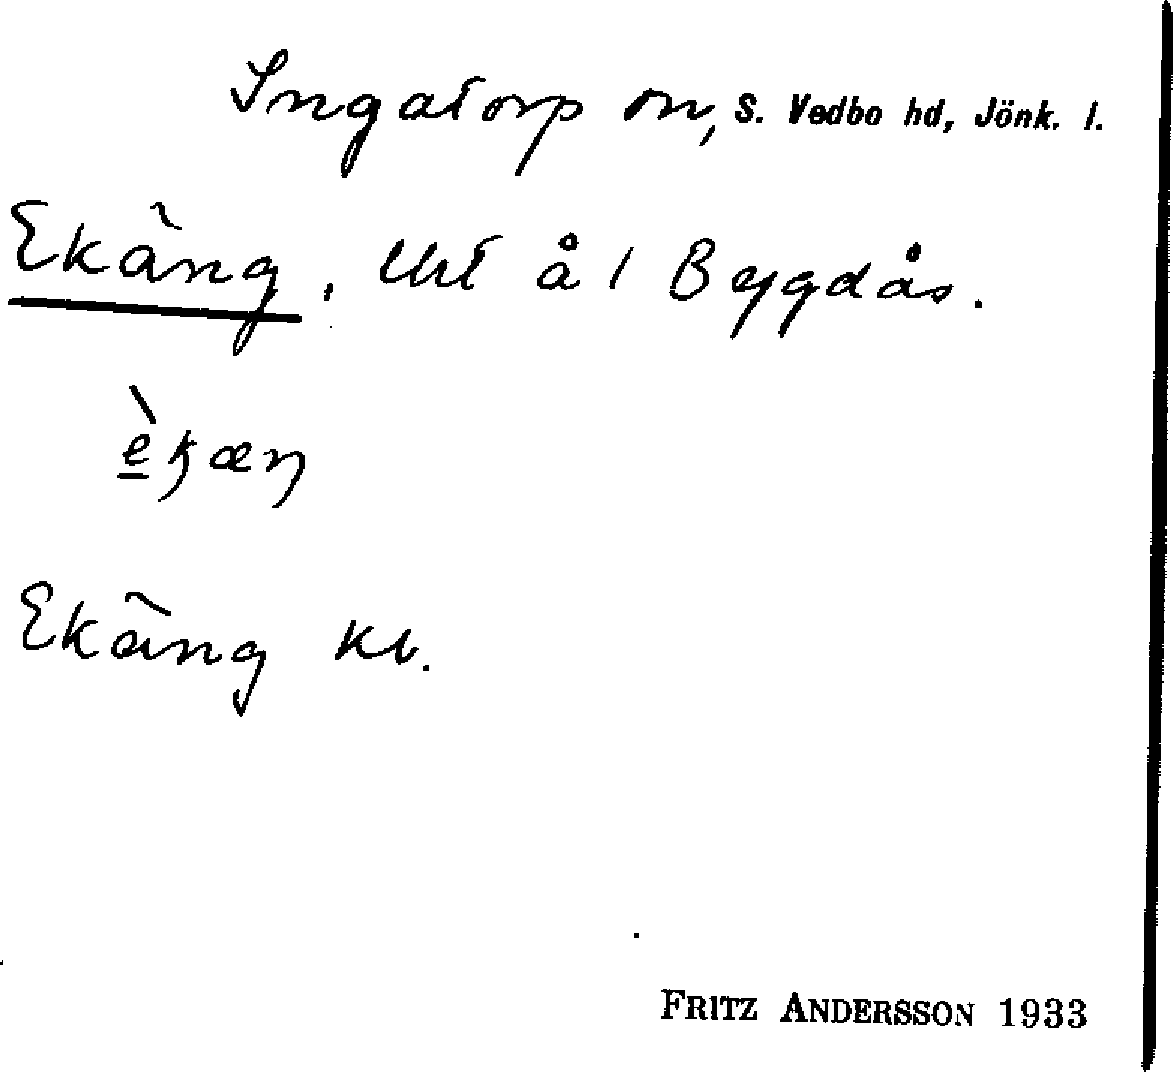 Ingatorp sn, S. Vedbo hd, Jönk. l.
Ekäng, lht å 1 Bygdås.
èkæŋ
Ekäng kl.
FRITZ ANDERSSON 1933